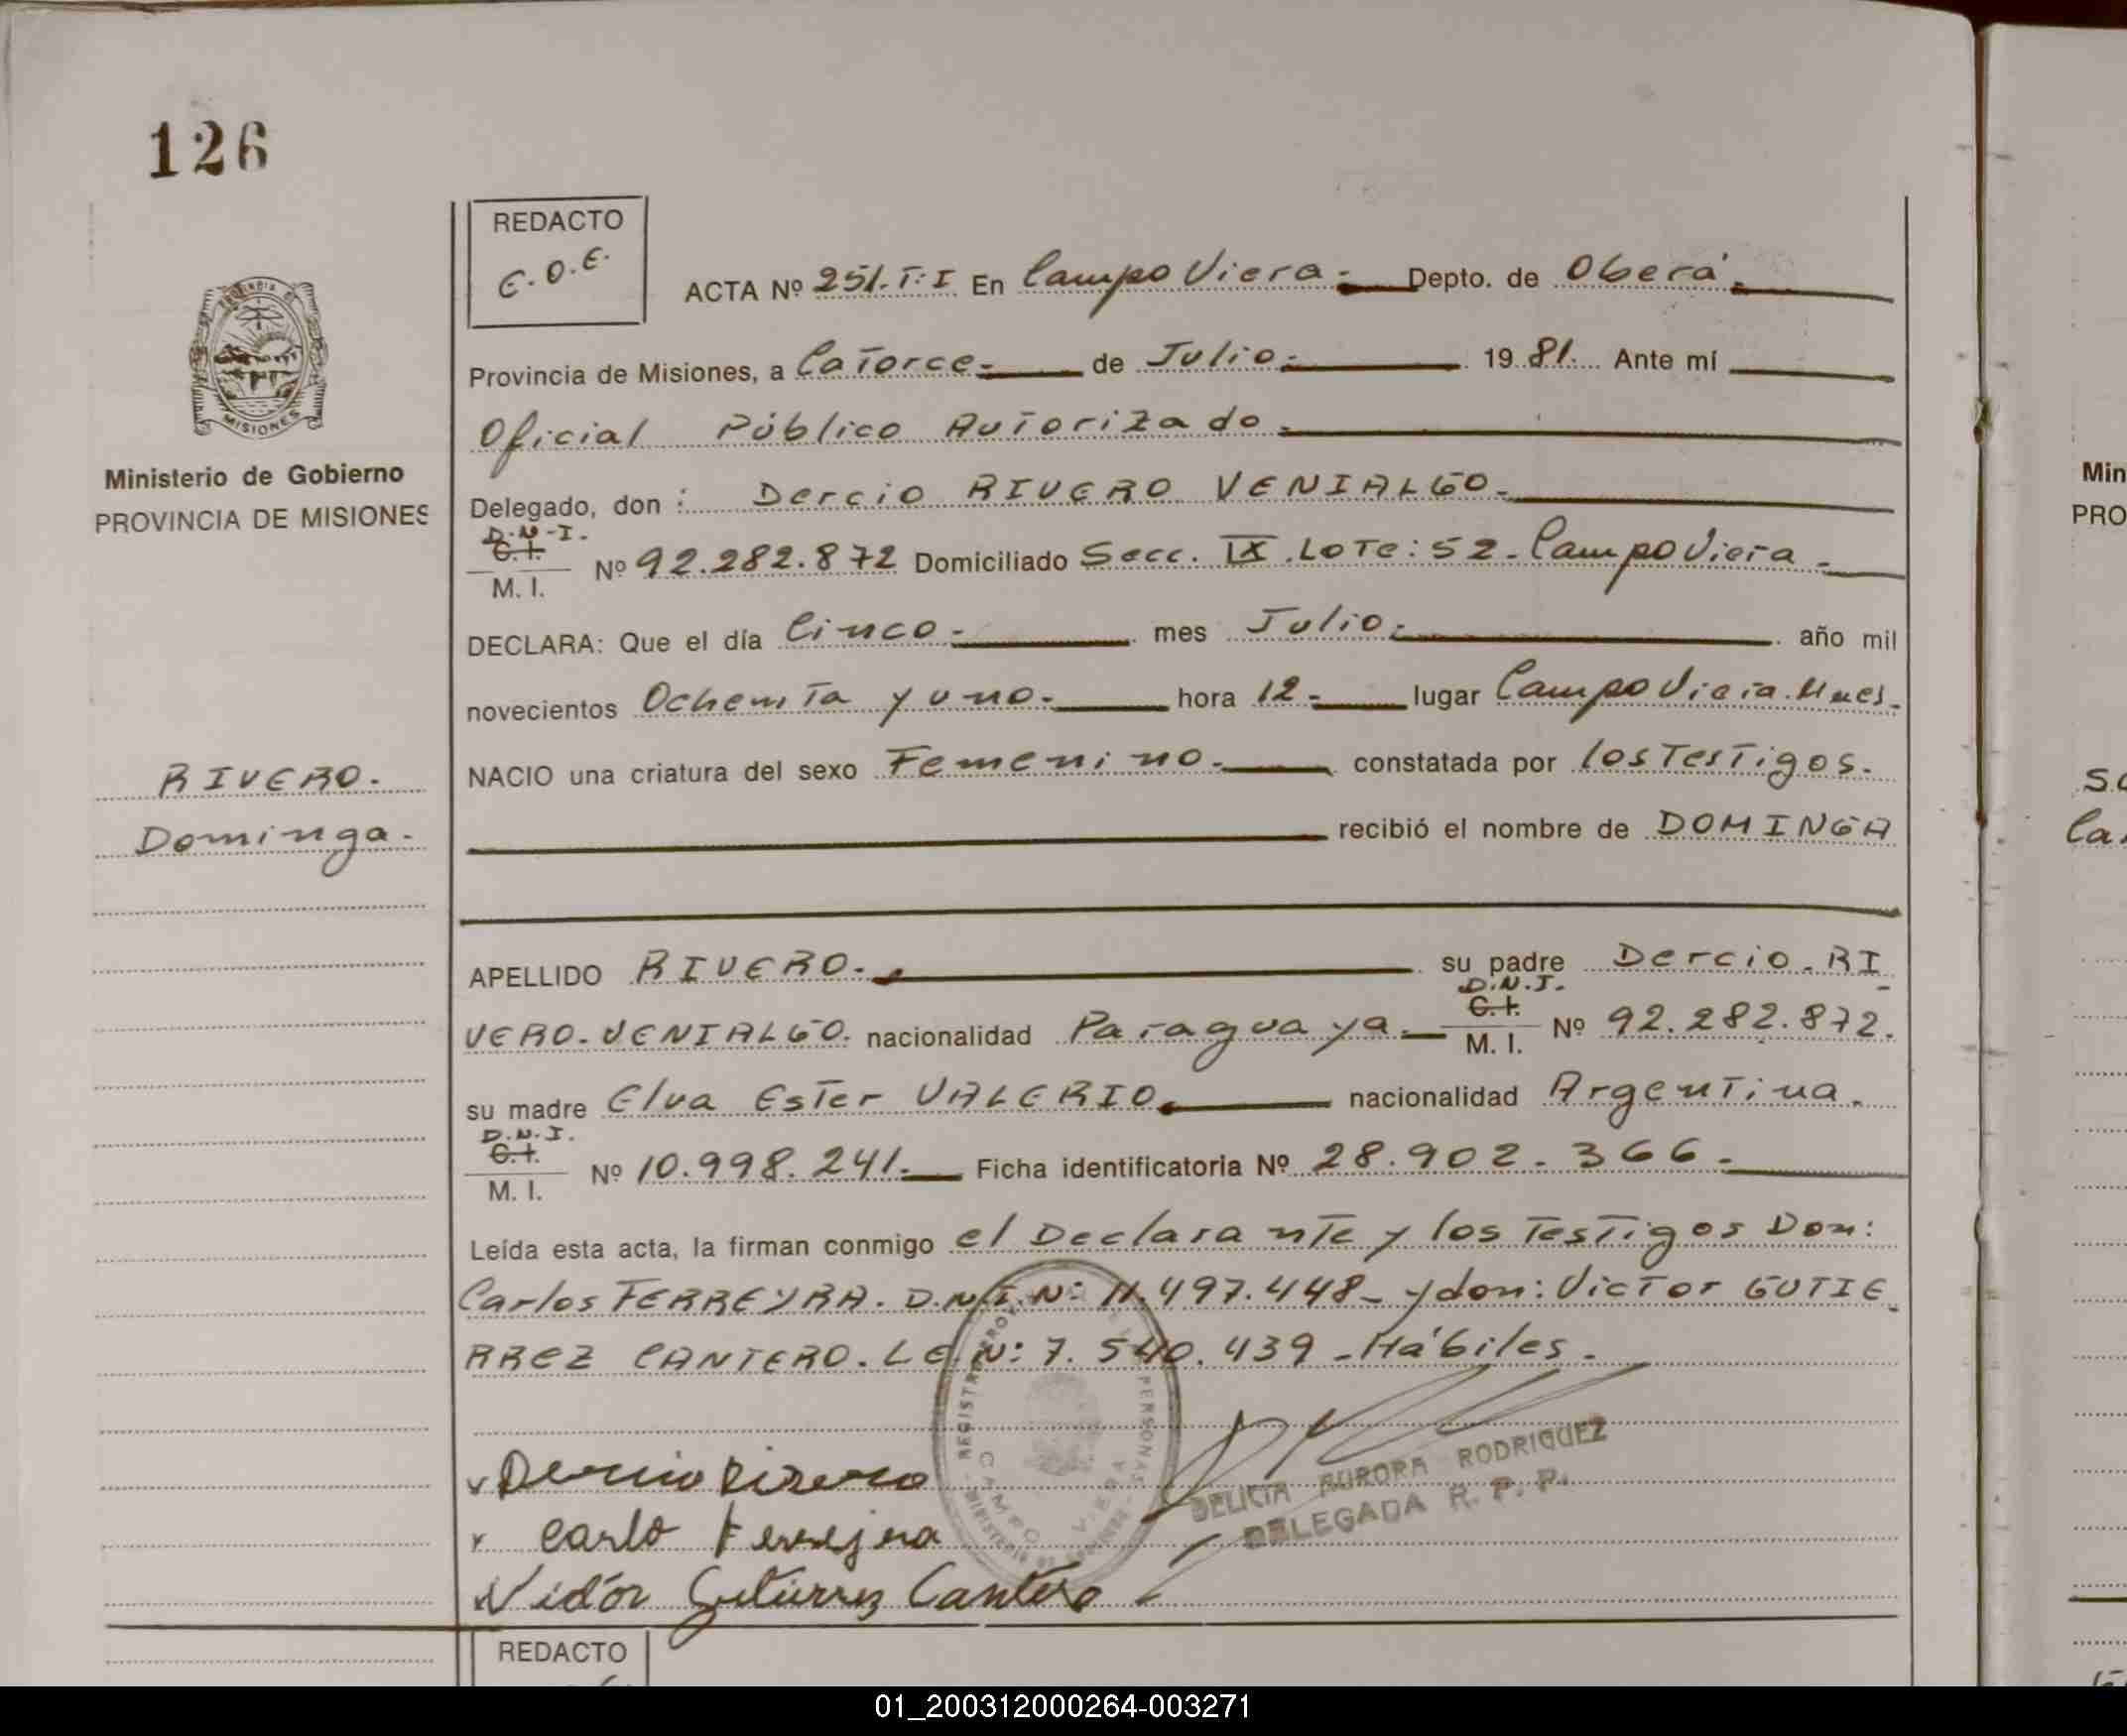 126
REDACTO
E.O.E.
ACTA Nº 251. T: I En Campo Viera.- Depto. de Oberá.-
Provincia de Misiones, a Catorce.- de Julio.- 1981. Ante mí
Oficial Público Autorizado.-
MISIONES
Ministerio de Gobierno
PROVINCIA DE MISIONES
Delegado, don : Dercio RIVERO VENIALGO.-
D.N.I.
C.I.
M. I. Nº 92.282.872 Domiciliado Secc. IX. Lote: 52. Campo Viera.-
DECLARA: Que el día Cinco.- mes Julio.- año mil
novecientos Ochenta y uno.- hora 12.- lugar Campo Viera.
NACIO una criatura del sexo Femenino.- constatada por los Testigos.
RIVERO.
Dominga.
recibió el nombre de DOMINGA
APELLIDO RIVERO.- su padre Dercio. RI
VERO. VENIALGO. nacionalidad Paraguaya.- D.N.I. C.I. M. I. Nº 92.282.872.
su madre Elva Ester VALERIO.- nacionalidad Argentina.
D.N.I.
C.I.
M. I. Nº 10.998.241.- Ficha identificatoria Nº 28.902.366.-
Leída esta acta, la firman conmigo el Declarante y los Testigos Don:
Carlos FERREYRA. D.N.I. N: 11.497.448- y don: Victor GUTIE
RREZ CANTERO. LE. N: 7.540.439 - Hábiles.-
REGISTRO PERSONAS
CAMPO VIERA
Dercio Rivero
Carlo Ferrejra
Victor Gutierrez Cantero
DELICIA AURORA RODRIGUEZ
DELEGADA R. P. P.
REDACTO
Min
PRO
01_200312000264-003271